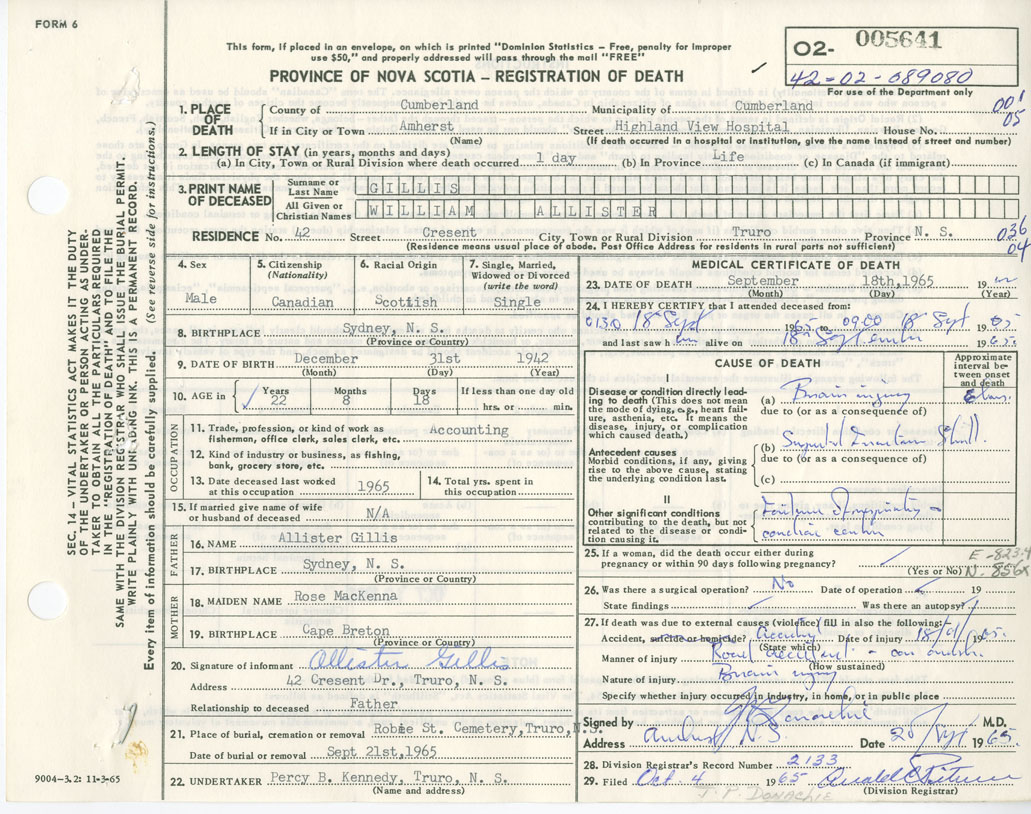 FORM 6
This form, if placed in an envelope, on which is printed "Dominion Statistics — Free, penalty for improper
use $50," and properly addressed will pass through the mail "FREE"
PROVINCE OF NOVA SCOTIA — REGISTRATION OF DEATH
O2- 005641
42=02-089080
For use of the Department only
001
05
SEC. 14 — VITAL STATISTICS ACT MAKES IT THE DUTY
OF THE UNDERTAKER OR PERSON ACTING AS UNDER-
TAKER TO OBTAIN ALL THE PARTICULARS REQUIRED
IN THE "REGISTRATION OF DEATH" AND TO FILE THE
SAME WITH THE DIVISION REGISTRAR WHO SHALL ISSUE THE BURIAL PERMIT.
WRITE PLAINLY WITH UNFADING INK. THIS IS A PERMANENT RECORD.
Every item of information should be carefully supplied. (See reverse side for instructions.)
1. PLACE OF DEATH
County of Cumberland Municipality of Cumberland
If in City or Town Amherst Street Highland View Hospital House No.
(Name) (If death occurred in a hospital or institution, give the name instead of street and number)
2. LENGTH OF STAY (in years, months and days)
(a) In City, Town or Rural Division where death occurred 1 day (b) In Province Life (c) In Canada (if immigrant)
3. PRINT NAME OF DECEASED
Surname or Last Name GILLIS
All Given or Christian Names WILLIAM ALLISTER
RESIDENCE No. 42 Street Cresent City, Town or Rural Division Truro Province N. S.
(Residence means usual place of abode. Post Office Address for residents in rural parts not sufficient)
036
04
4. Sex
Male
5. Citizenship
(Nationality)
Canadian
6. Racial Origin
Scottish
7. Single, Married,
Widowed or Divorced
(write the word)
Single
8. BIRTHPLACE Sydney, N. S.
(Province or Country)
9. DATE OF BIRTH December 31st 1942
(Month) (Day) (Year)
10. AGE in
Years 22
Months 8
Days 18
If less than one day old
hrs. or min.
OCCUPATION
11. Trade, profession, or kind of work as
fisherman, office clerk, sales clerk, etc. Accounting
12. Kind of industry or business, as fishing,
bank, grocery store, etc.
13. Date deceased last worked
at this occupation 1965
14. Total yrs. spent in
this occupation
15. If married give name of wife
or husband of deceased N/A
FATHER
16. NAME Allister Gillis
17. BIRTHPLACE Sydney, N. S.
(Province or Country)
MOTHER
18. MAIDEN NAME Rose MacKenna
19. BIRTHPLACE Cape Breton
(Province or Country)
20. Signature of informant Allister Gillis
Address 42 Cresent Dr., Truro, N. S.
Relationship to deceased Father
21. Place of burial, cremation or removal Robie St. Cemetery,Truro,N.S.
Date of burial or removal Sept 21st,1965
22. UNDERTAKER Percy B. Kennedy, Truro, N. S.
(Name and address)
9004-3.2: 11-3-65
MEDICAL CERTIFICATE OF DEATH
23. DATE OF DEATH September 18th,1965 19
(Month) (Day) (Year)
24. I HEREBY CERTIFY that I attended deceased from:
0130 18 Sept 1965 to 0900 18 Sept 1965
and last saw him alive on 18 September 1965.
CAUSE OF DEATH
Approximate
interval be-
tween onset
and death
I
Disease or condition directly lead-
ing to death (This does not mean
the mode of dying, e.g., heart fail-
ure, asthenia, etc. It means the
disease, injury, or complication
which caused death.)
(a) Brain injury
due to (or as a consequence of)
Antecedent causes
Morbid conditions, if any, giving
rise to the above cause, stating
the underlying condition last.
(b)
due to (or as a consequence of)
(c)
II
Other significant conditions
contributing to the death, but not
related to the disease or condi-
tion causing it.
25. If a woman, did the death occur either during
pregnancy or within 90 days following pregnancy?
(Yes or No)
E-823.4
N. 856X
26. Was there a surgical operation? No Date of operation 19
State findings Was there an autopsy?
27. If death was due to external causes (violence) fill in also the following:
Accident, suicide or homicide? Accident Date of injury 18/9/ 1965.
(State which)
Manner of injury Road accident - car
(How sustained)
Nature of injury Brain injury
Specify whether injury occurred in industry, in home, or in public place
Signed by J P Donachie M.D.
Address Amherst N.S. Date 20 Sept 1965.
28. Division Registrar's Record Number 2133
29. Filed Oct. 4 1965
(Division Registrar)
J. P. DONACHIE